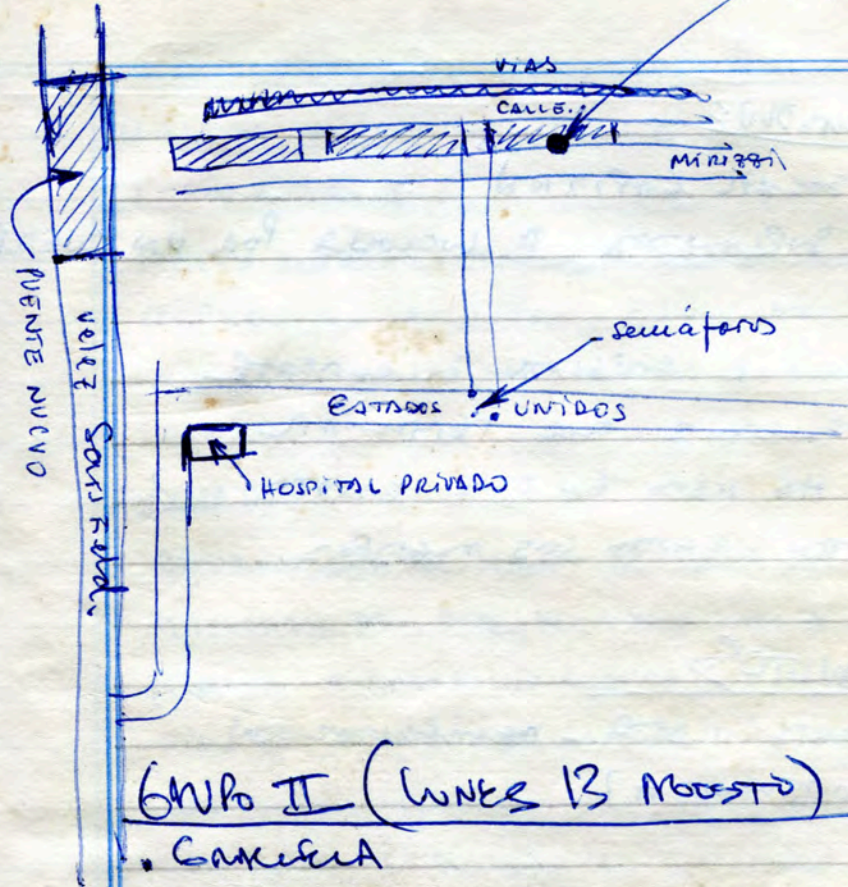 VIAS
CALLE
MIRIZZI
PUENTE NUEVO
Velez Sarsfield.
semáforos
ESTADOS UNIDOS
HOSPITAL PRIVADO
GRUPO II (LUNES 13 AGOSTO)
. GRACIELA